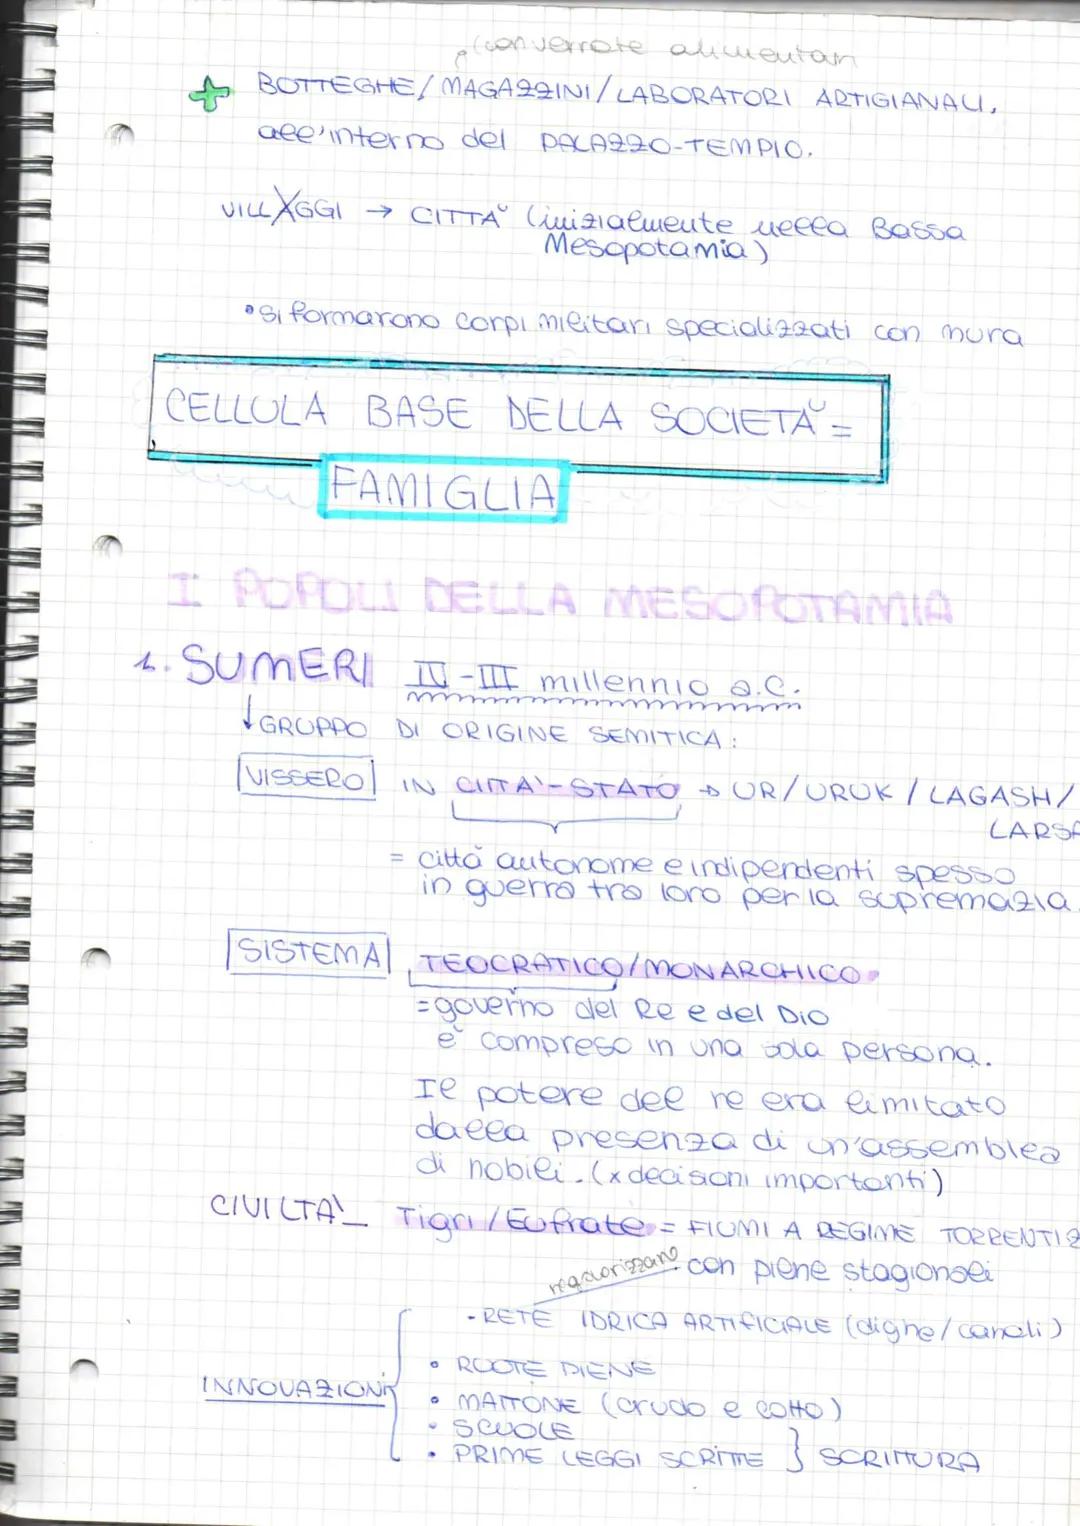 (converrate alimentari
+ BOTTEGHE/ MAGAZZINI/LABORATORI ARTIGIANALI,
all'interno del PALAZZO-TEMPIO.
VILLAGGI → CITTÀ (inizialmente nella Bassa
Mesopotamia)
• si formarono corpi militari specializzati con mura
CELLULA BASE DELLA SOCIETÀ =
FAMIGLIA
I POPOLI DELLA MESOPOTAMIA
1. SUMERI IV-III millennio a.C.
↓ GRUPPO DI ORIGINE SEMITICA:
VISSERO IN CITTA'-STATO → UR/URUK / LAGASH/
LARSA
= città autonome e indipendenti spesso
in guerra tra loro per la supremazia.
SISTEMA TEOCRATICO/MONARCHICO
= governo del Re e del Dio
è compreso in una sola persona.
Il potere del re era limitato
dalla presenza di un'assemblea
di nobili. (x decisioni importanti)
CIVILTA'_ Tigri/Eufrate = FIUMI A REGIME TORRENTIZ
con piene stagionali
- RETE IDRICA ARTIFICIALE (dighe/canali)
INNOVAZIONI
• RUOTE PIENE
• MATTONE (crudo e cotto)
• SCUOLE
• PRIME LEGGI SCRITTE } SCRITTURA